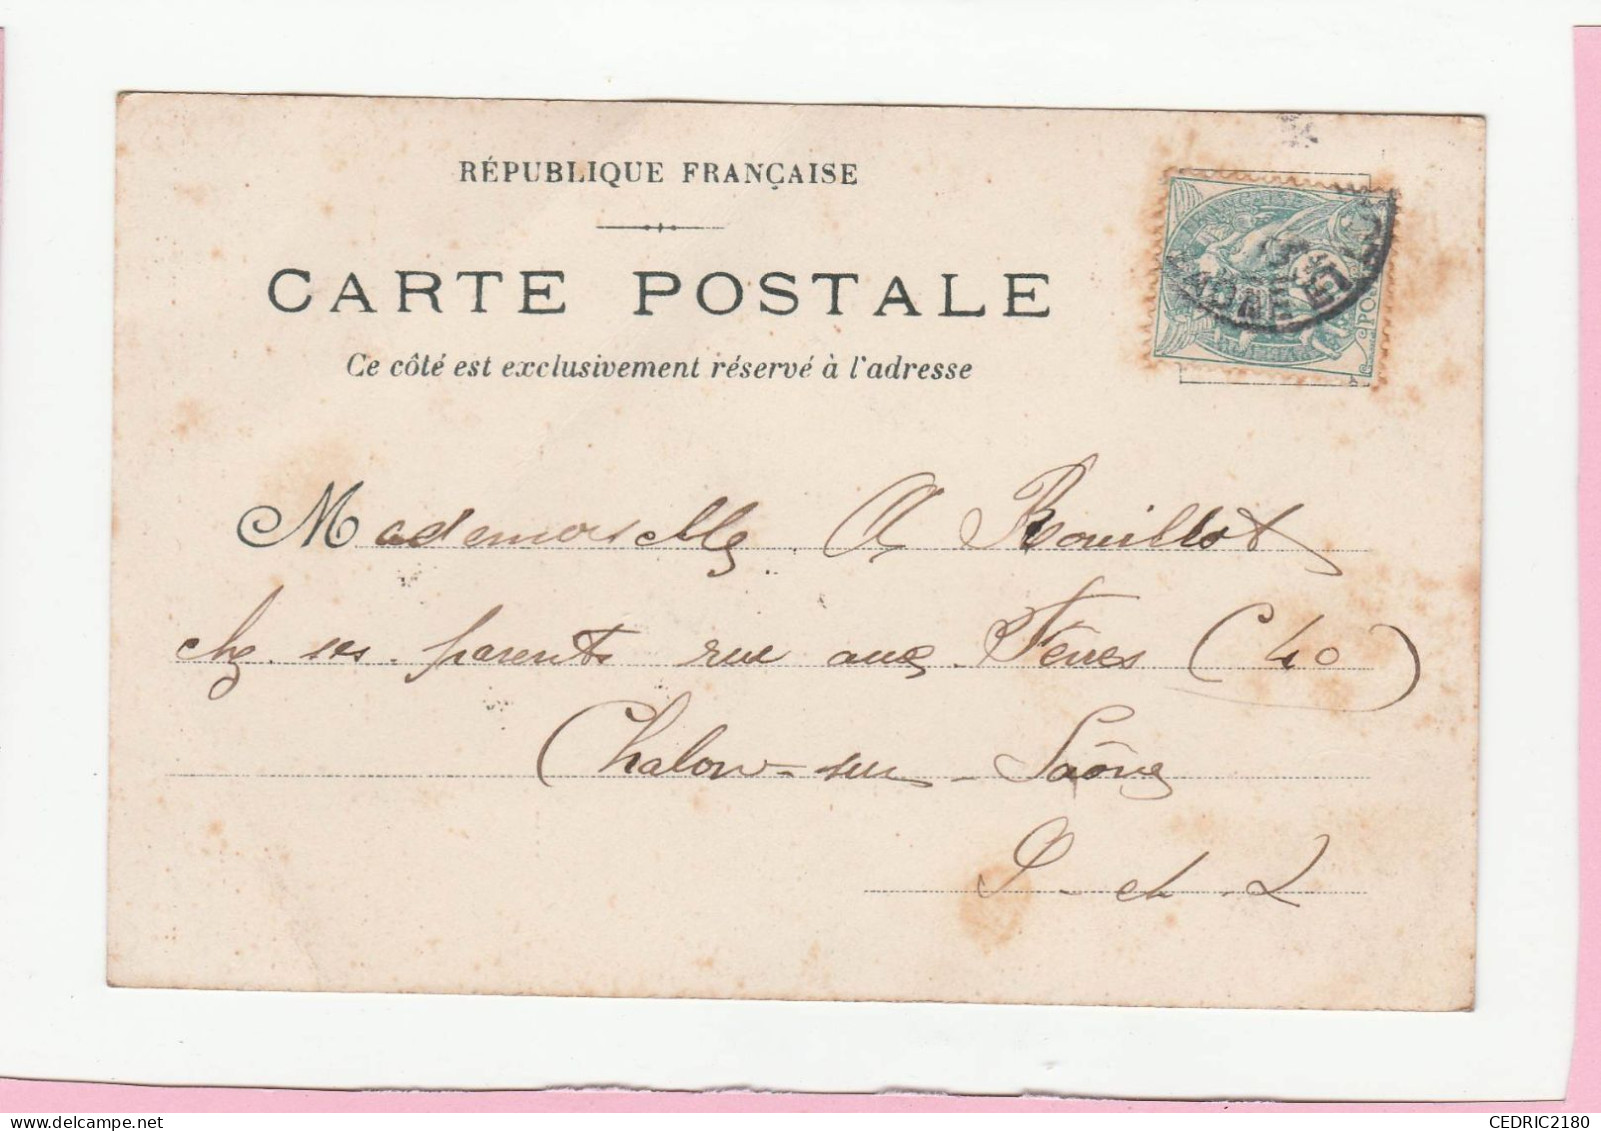 RÉPUBLIQUE FRANÇAISE
CARTE POSTALE
Ce côté est exclusivement réservé à l'adresse
Mademoiselle A Rouillot
chez ses parents rue aux Fèvres (40)
Chalon-sur-Saône
S-et-L
CEDRIC2180